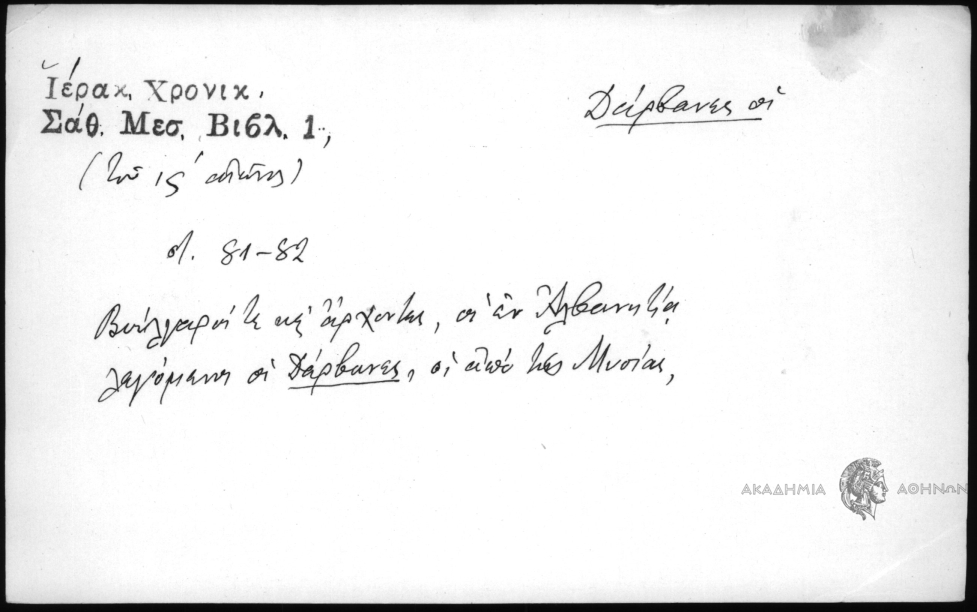 Ἱέρακ. Χρονικ.
Σάθ. Μεσ. Βιβλ. 1,
Δάρβανες οἱ
(τοῦ ις΄ αἰῶνος)
στ. 81-82
Βούλγαροί τε καὶ ἄρχοντες, οἱ ἐν Ἀλβανητίᾳ
λεγόμενοι οἱ Δάρβανες, οἱ ἀπὸ τῆς Μυσίας,
ΑΚΑΔΗΜΙΑ ΑΘΗΝΩΝ